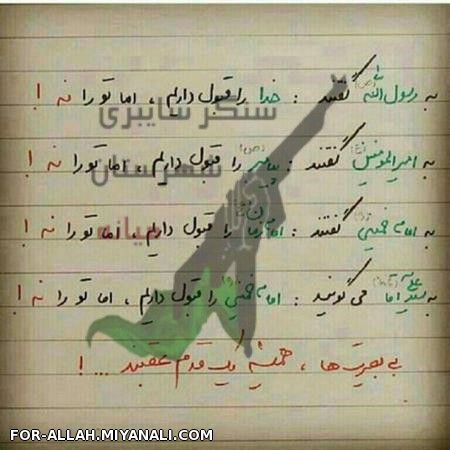 به رسول الله (ص) گفتند : خدا را قبول داریم ، اما تو را نه !
سنگر سایبری
به امیرالمومنین (ع) گفتند : پیامبر (ص) را قبول داریم ، اما تو را نه !
شهرستان
به امام خمینی (ره) گفتند : امام زمان را قبول داریم ، اما تو را نه !
میانه
به سید علی آقا می گویند : امام خمینی (ره) را قبول داریم ، اما تو را نه !
بی بصیرت ها ، همیشه یک قدم عقبند ... !
FOR-ALLAH.MIYANALI.COM